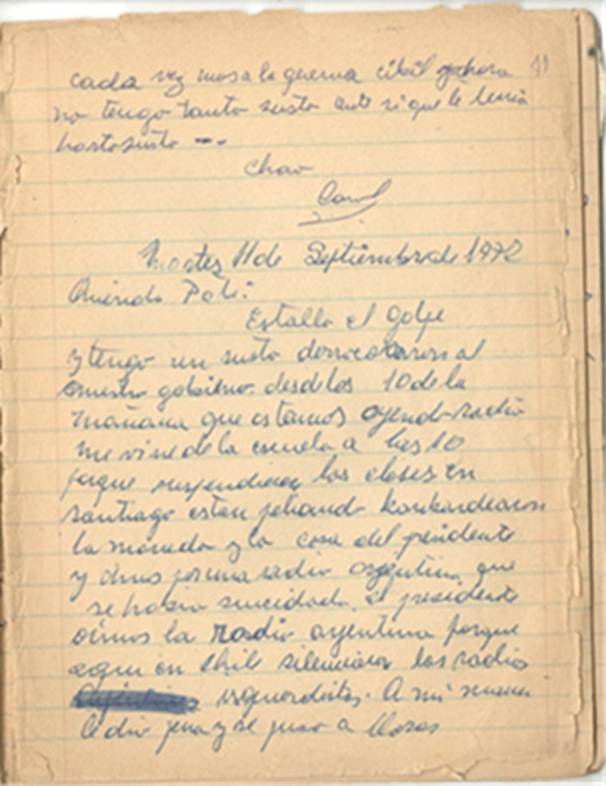 cada vez mas a la guerra cibil y ahora 41
no tengo tanto susto ante si que le tenia
harto susto --.
Chao
Carol
Martes 11 de Septiembre de 1973
Querido Pate:
Estallo el golpe
y tengo un susto derrocaron al
nuestro gobierno. desde las 10 de la
mañana que estamos oyendo radio
me vine de la escuela a las 10
porque suspendieron las clases en
santiago estan peliando bonbardearon
la moneda y la casa del presidente
y oimos por una radio argentina que
se habia suicidado el presidente
oimos la radio argentina porque
aqui en chile silenciaron las radio
isquierdistas. A mi mama
le dio pena y se puso a llorar